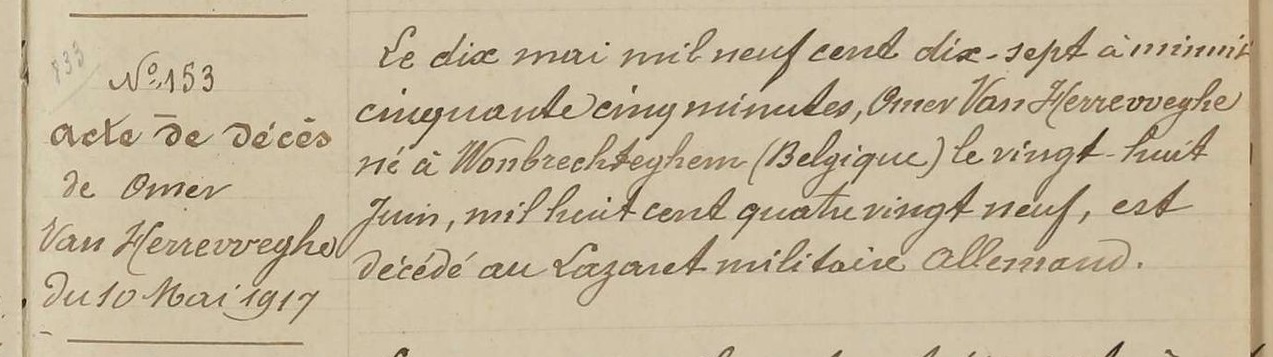 833
No 153
acte de décès
de Omer
Van Herrevveghe
du 10 Mai 1917
Le dix mai mil neuf cent dix-sept à minuit
cinquante cinq minutes, Omer Van Herrevveghe
né à Wonbrechteghem (Belgique) le vingt-huit
Juin, mil huit cent quatre vingt neuf, est
décédé au Lazaret militaire Allemand.